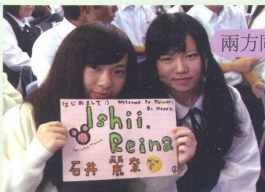 はじめまして Welcome to Taiwan!
Be Happy.
Ishii
Reina
石井
兩方同